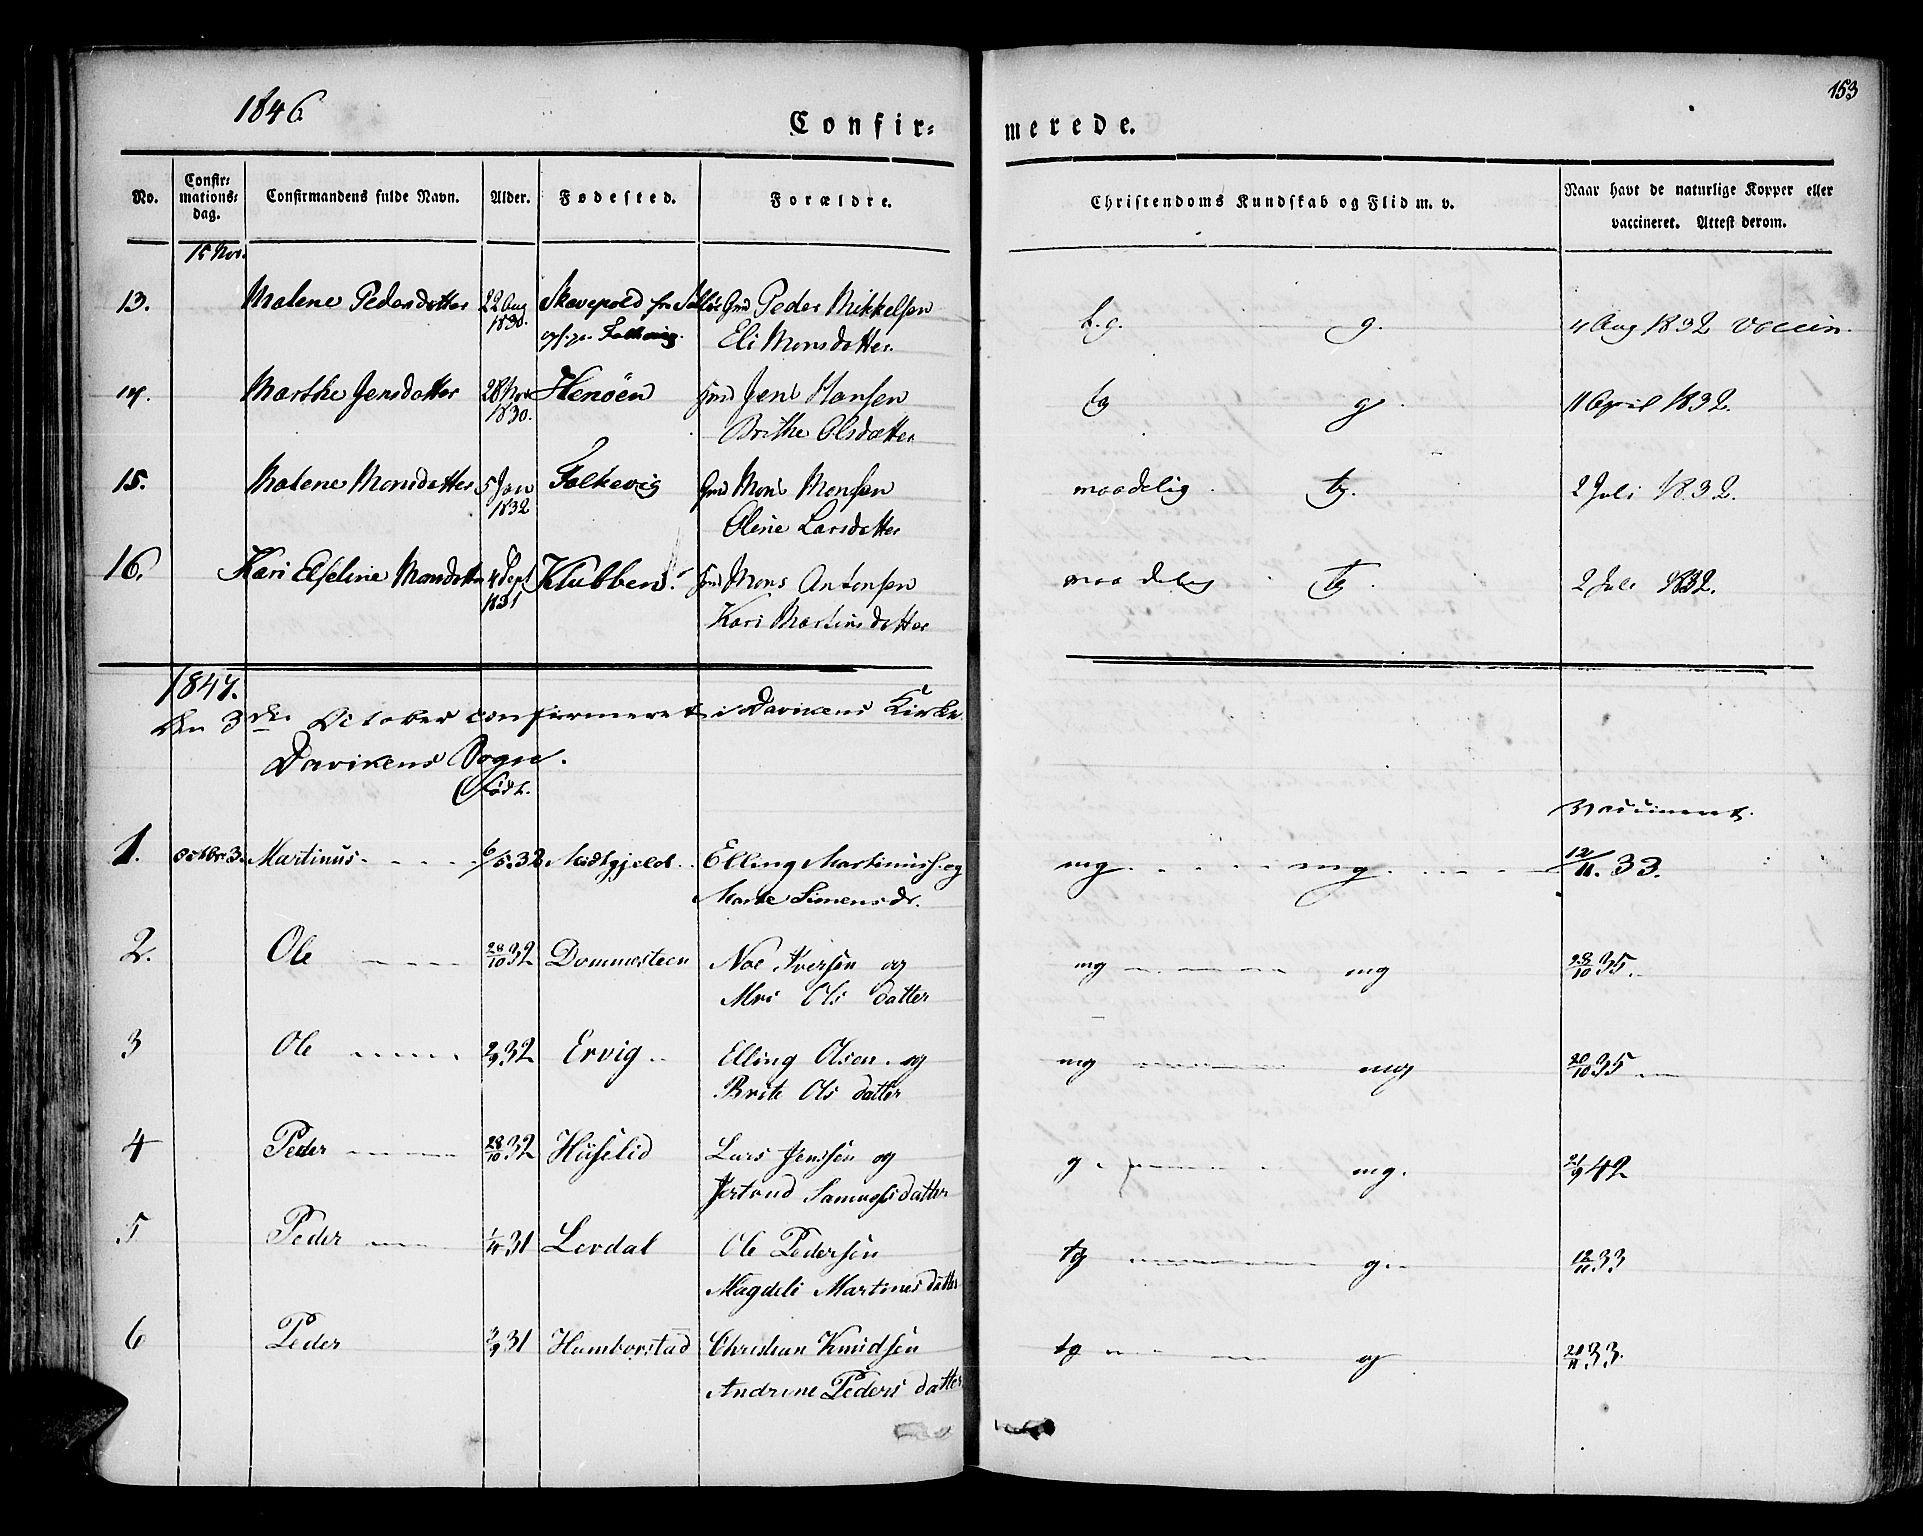 1846
153
Confir=
merede.
No. Confir= mations= dag. Confirmandens fulde Navn. Alder. Fødested. Forældre. Christendoms Kundskab og Flid m. v. Naar havt de naturlige Kopper eller vaccineret. Attest derom.
15 Nov.
13. Malene Pedersdatter 22 Aug 1830. Gmd Peder Mikkelsen t.g. g. 4 Aug 1832 vaccin.
Eli Monsdatter.
14. Marthe Jensdatter 28 Nov 1830. Henöen Jens Hansen tg g. 11 April 1832.
Brithe Olsdatter
15. Malene Monsdatter 5 Jan 1832 Falkevig Gmd Mons Monsen maadelig. tg. 2 Juli 1832.
Oline Larsdatter
16. Kari Elseline Monsdatter 4 Sept 1831 Klubben. Mons Antonsen maadelig tg. 2 Juli 1832.
Kari Martinsdatter
1847.
den 3die October confirmeret i Davikens Kirke
Davikens Sogn.
Födt.
Vaccineret.
1. Octbr 3. Martinus 6/5. 32 Elling Martinuss. og mg mg 12/11. 33.
Marte Simensdr.
2. Ole 28/10 32 Dommesteen Noe Iversen og mg mg 28/10 35.
Mri Ols datter
3 Ole 2/9 32 Ervig Elling Olsen og mg mg 20/10 35
Brite Ols datter
4 Peder 28/10 32 Hüselid Lars Jenssen og g. mg. 21/9 42
Jertrud Samuels datter
5 Peder 31 Levdal Ole Pedersen tg g. 12/11 33
Magdeli Martines datter
6 Peder 3/9 31 Humborstad Christian Knudsen tg g 33.
Andrine Peders datter